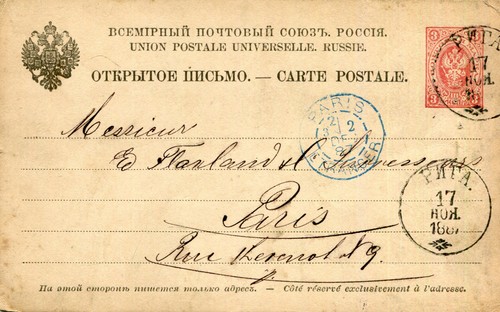 ВСЕМІРНЫЙ ПОЧТОВЫЙ СОЮЗЪ. РОССІЯ.
UNION POSTALE UNIVERSELLE. RUSSIE.
ОТКРЫТОЕ ПИСЬМО. — CARTE POSTALE.
3
РИГА
17
НОЯ.
PARIS
2
ETRANGER
Messieur
Ed
Paris
Rue
N 9.
РИГА.
17
НОЯ.
188
На этой сторонѣ пишется только адресъ. — Côté réservé exclusivement à l'adresse.